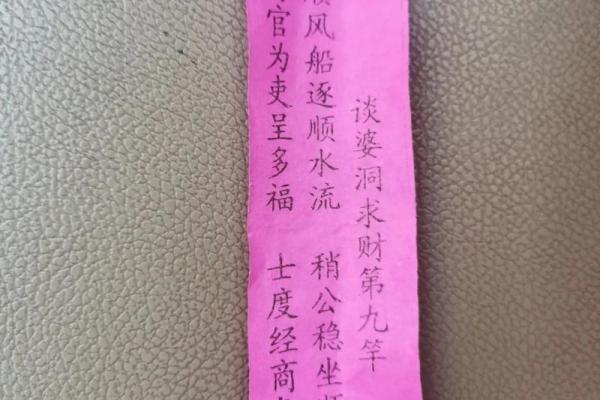 谈婆洞求财第九竿
顺风船逐顺水流 稍公稳坐
官为吏呈多福 士度经商